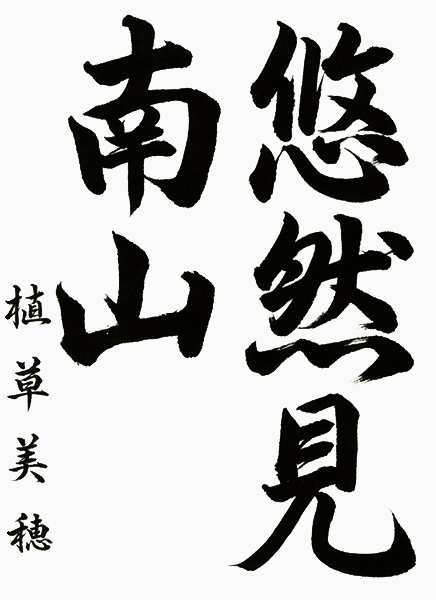 悠然見
南山
植草美穂